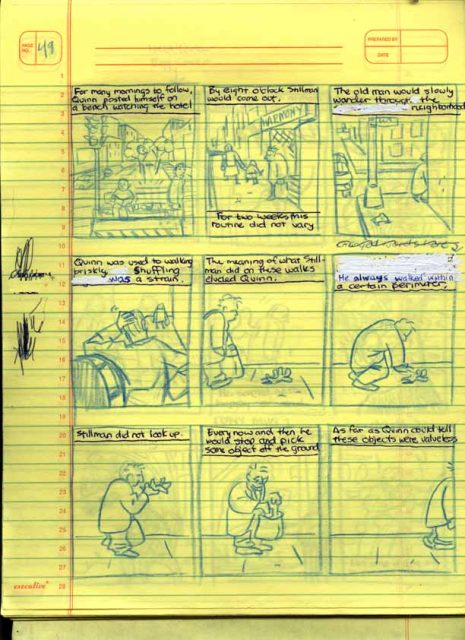 PAGE NO.
49
PREPARED BY
DATE
1
2
3
4
5
6
7
8
9
10
11
12
13
14
15
16
17
18
19
20
21
22
23
24
25
26
27
28
For many mornings to follow,
Quinn posted himself on
a bench watching the hotel
By eight o'clock Stillman
would come out.
HARMONY
For two weeks this
routine did not vary
The old man would slowly
wander through the
neighborhood
Quinn was used to walking
briskly. Shuffling
was a strain.
The meaning of what Still-
man did on these walks
eluded Quinn.
He always walked within
a certain perimeter,
Stillman did not look up.
Every now and then he
would stop and pick
some object off the ground
As far as Quinn could tell
these objects were valueless
executive®